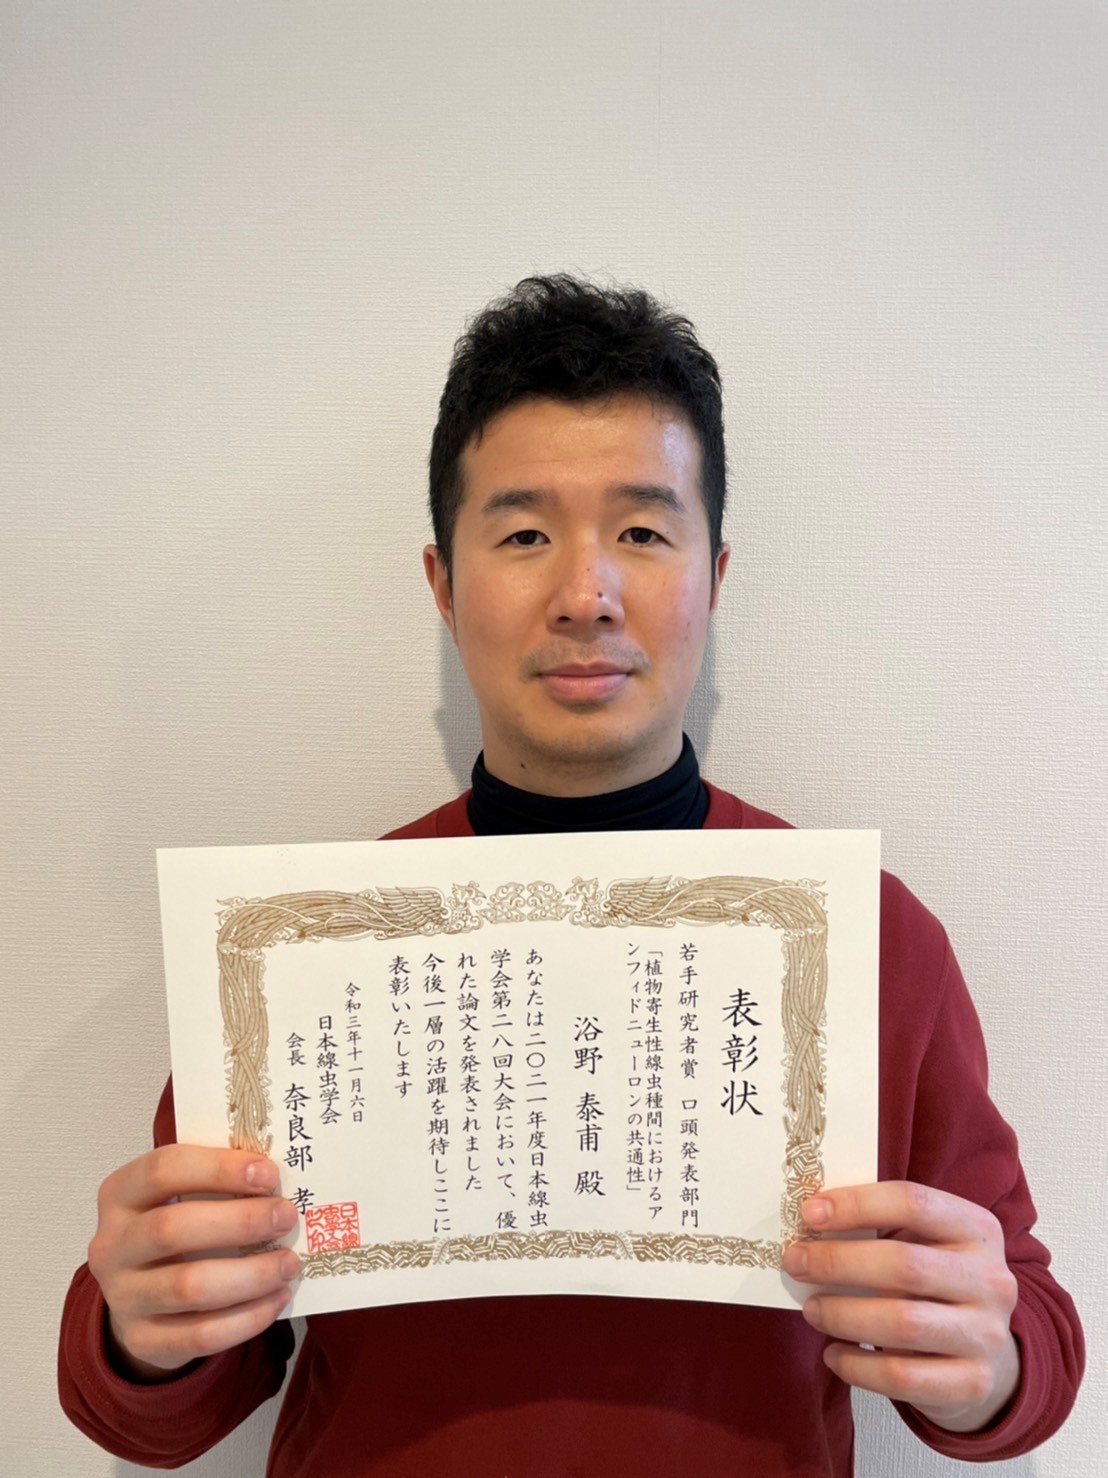 表彰状
若手研究者賞 口頭発表部門
「植物寄生性線虫種間におけるア
ンフィドニューロンの共通性」
浴野 泰甫 殿
あなたは二〇二一年度日本線虫
学会第二八回大会において、優
れた論文を発表されました
今後一層の活躍を期待しここに
表彰いたします
令和三年十一月六日
日本線虫学会
会長 奈良部 孝